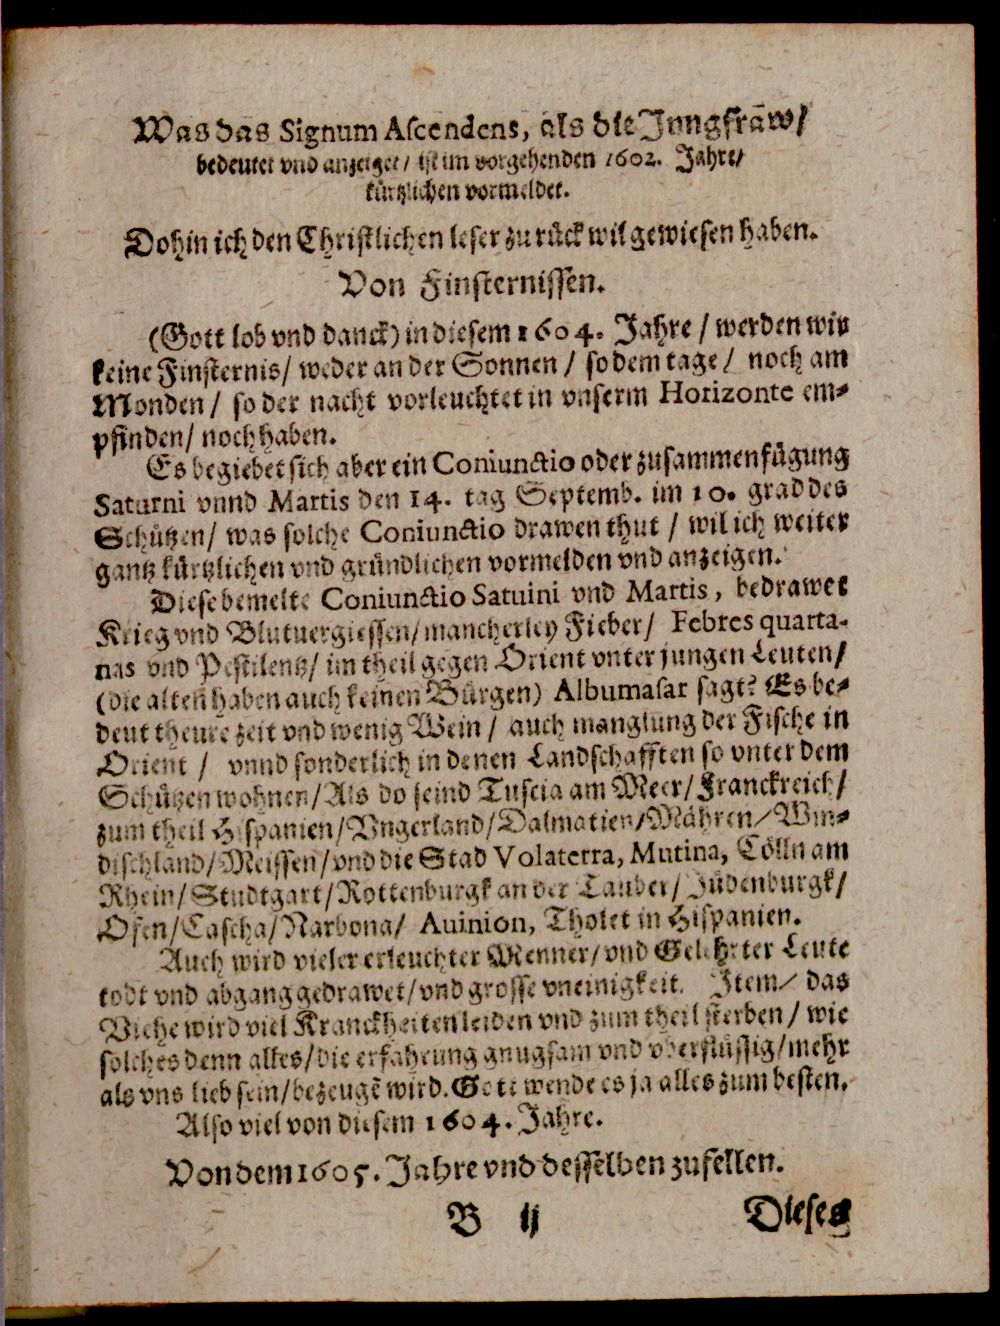 Was das Signum Ascendens, als die Jungfraw/
bedeutet vnd anzeiget/ ist im vorgehenden 1602. Jahre/
kürtzlichen vormeldet.
Dohin ich den Christlichen leser zu rück wil gewiesen haben.
Von Finsternissen.
(Gott lob vnd danck) in diesem 1604. Jahre / werden wir
keine Finsternis/ weder an der Sonnen / so dem tage / noch am
Monden / so der nacht vorleuchtet in vnserm Horizonte em-
pfinden/ noch haben.
Es begiebet sich aber ein Coniunctio oder zusammenfügung
Saturni vnnd Martis den 14. tag Septemb. im 10. grad des
Schützen/ was solche Coniunctio drawen thut / wil ich weiter
gantz kürtzlichen vnd gründlichen vormelden vnd anzeigen.
Diese bemelte Coniunctio Satuini vnd Martis, bedrawet
Krieg vnd Blutuergiessen/ mancherley Fieber/ Febres quarta-
nas vnd Pestilentz/ im theil gegen Orient vnter jungen Leuten/
(die alten haben auch keinen Bürgen) Albumasar sagt: Es be-
deut theure zeit vnd wenig Wein / auch manglung der Fische in
Orient / vnnd sonderlich in denen Landschafften so vnter dem
Schützen wohnen/ Als do seind Tuscia am Meer/ Franckreich/
zum theil Hispanien/ Vngerland/ Dalmatien/ Mähren/ Win-
dischland/ Meissen/ vnd die Stad Volaterra, Mutina, Cölln am
Rhein/ Studtgart/ Rottenburgk an der Tauber/ Jüdenburgk/
Ofen/ Cascha/ Narbona/ Auinion, Tholet in Hispanien.
Auch wird vieler erleuchter Menner/ vnd Gelehrter Leute
todt vnd abgang gedrawet/ vnd grosse vneinigkeit. Item/ das
Viehe wird viel Kranckheiten leiden vnd zum theil sterben / wie
solches denn alles/ die erfahrung gnugsam vnd vberflüssig/ mehr
als vns lieb sein/ bezeugē wird. Gott wende es ja alles zum besten.
Also viel von diesem 1604. Jahre.
Von dem 1605. Jahre vnd desselben zufellen.
B ij Dieses